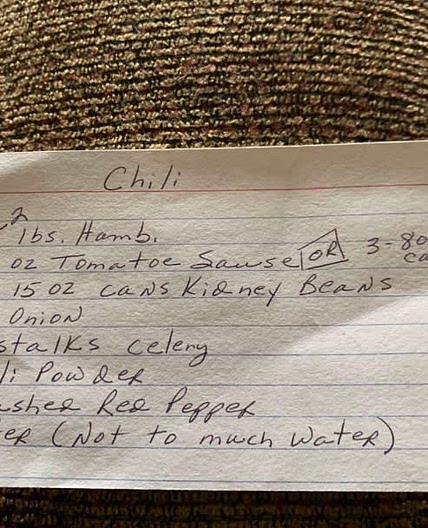 Chili
2
lbs. Hamb.
oz Tomatoe Sawse OR 3-80
ca
15 oz cans Kidney Beans
Onion
stalks celery
li Powder
ushed Red Pepper
er (Not to much Water)